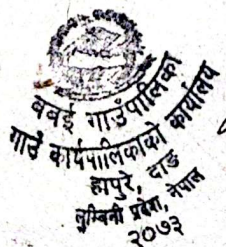 बबई गाउँपालिका
गाउँ कार्यपालिकाको कार्यालय
हापुरे, दाङ
लुम्बिनी प्रदेश, नेपाल
२०७३